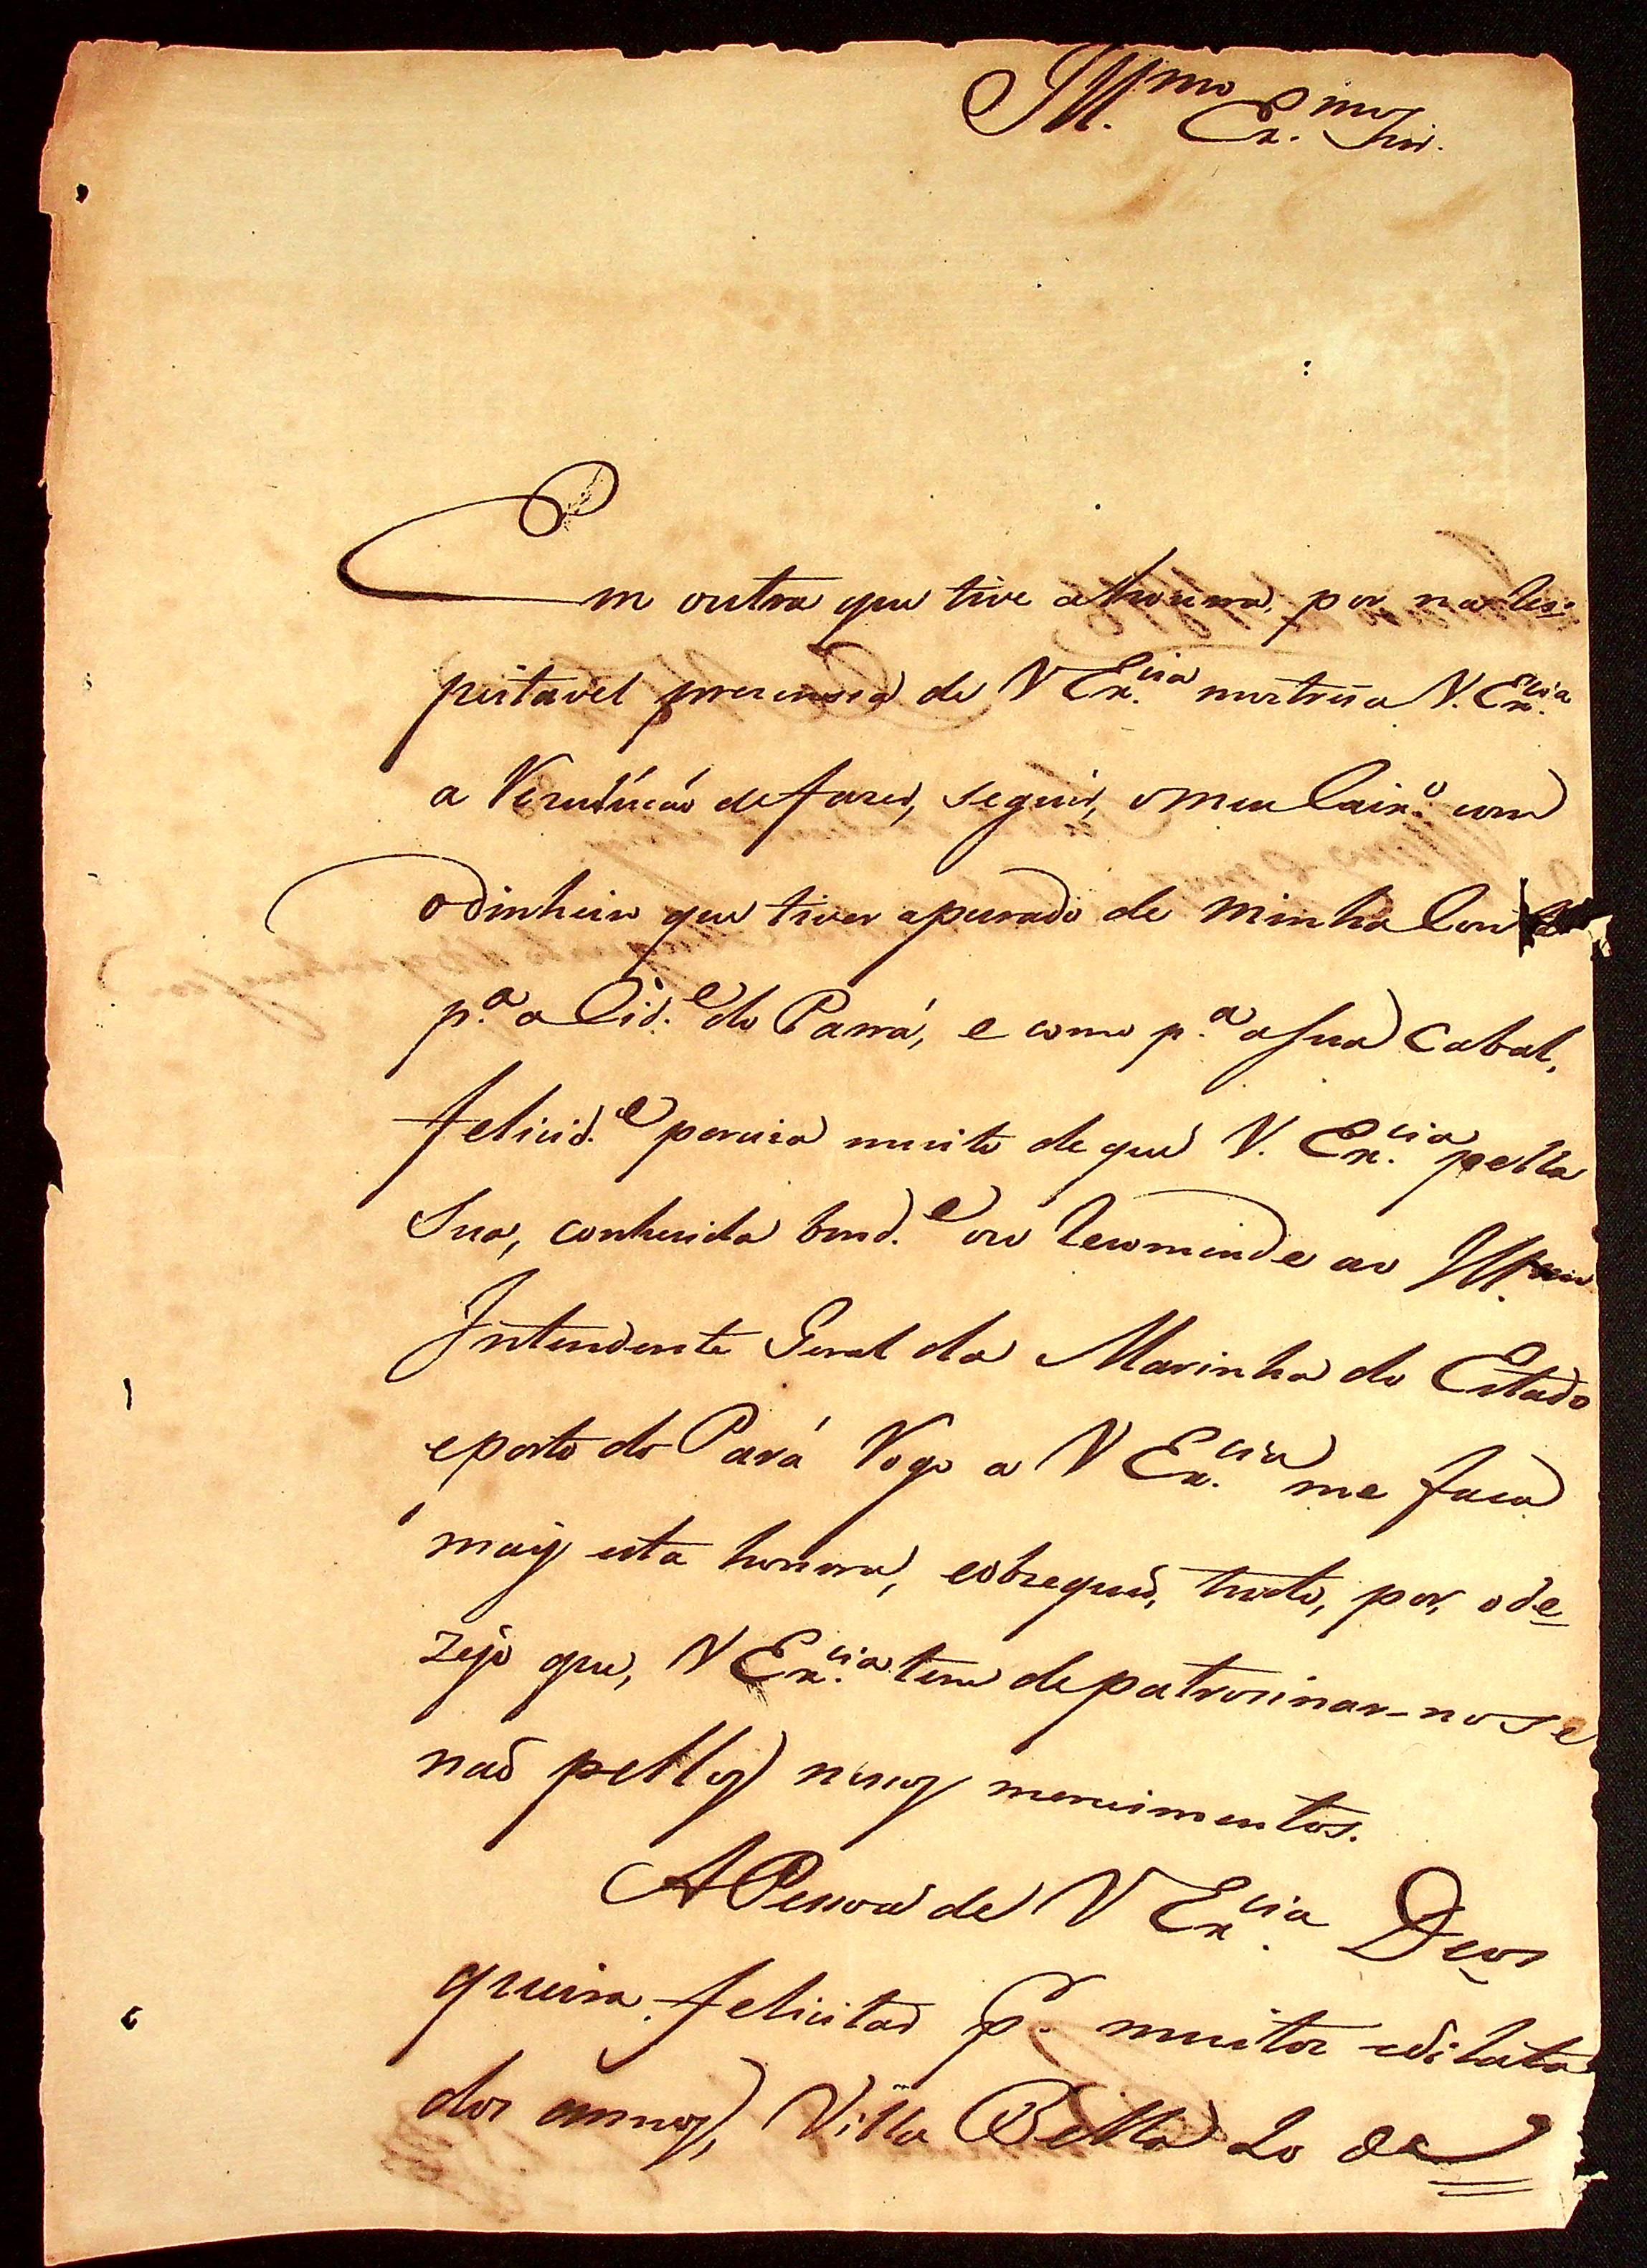 Ill.mo Ex.mo Snr.
Em outra que tive a honrra, por na Res-
peitavel prezensia de V Ex.cia mostrei a V. Ex.cia
a Rezulúcáo de fazer, seguir, o meu Caix.o com
o dinheiro que tiver apurado de minha Conta
p.a a Cid.e do Parrá, e como p.a a sua Cabal,
felicid.e perciza muito de que V. Ex.cia pella
Sua, conhecida bond.e o Recomende ao Ill.mo
Intendente Geral da Marinha do Estado
e porto do Pará Rogo a V Ex.cia me faca
mais esta honrra, e obzequio, tudo, por, o de-
zejo que, V Ex.cia tem de patrocinar-no se
naõ pellos meus merecimentos.
A Pessoa de V Ex.cia Deos
queira felicitar p.r muitos e dilata
dos annos, Villa Bella 20 de